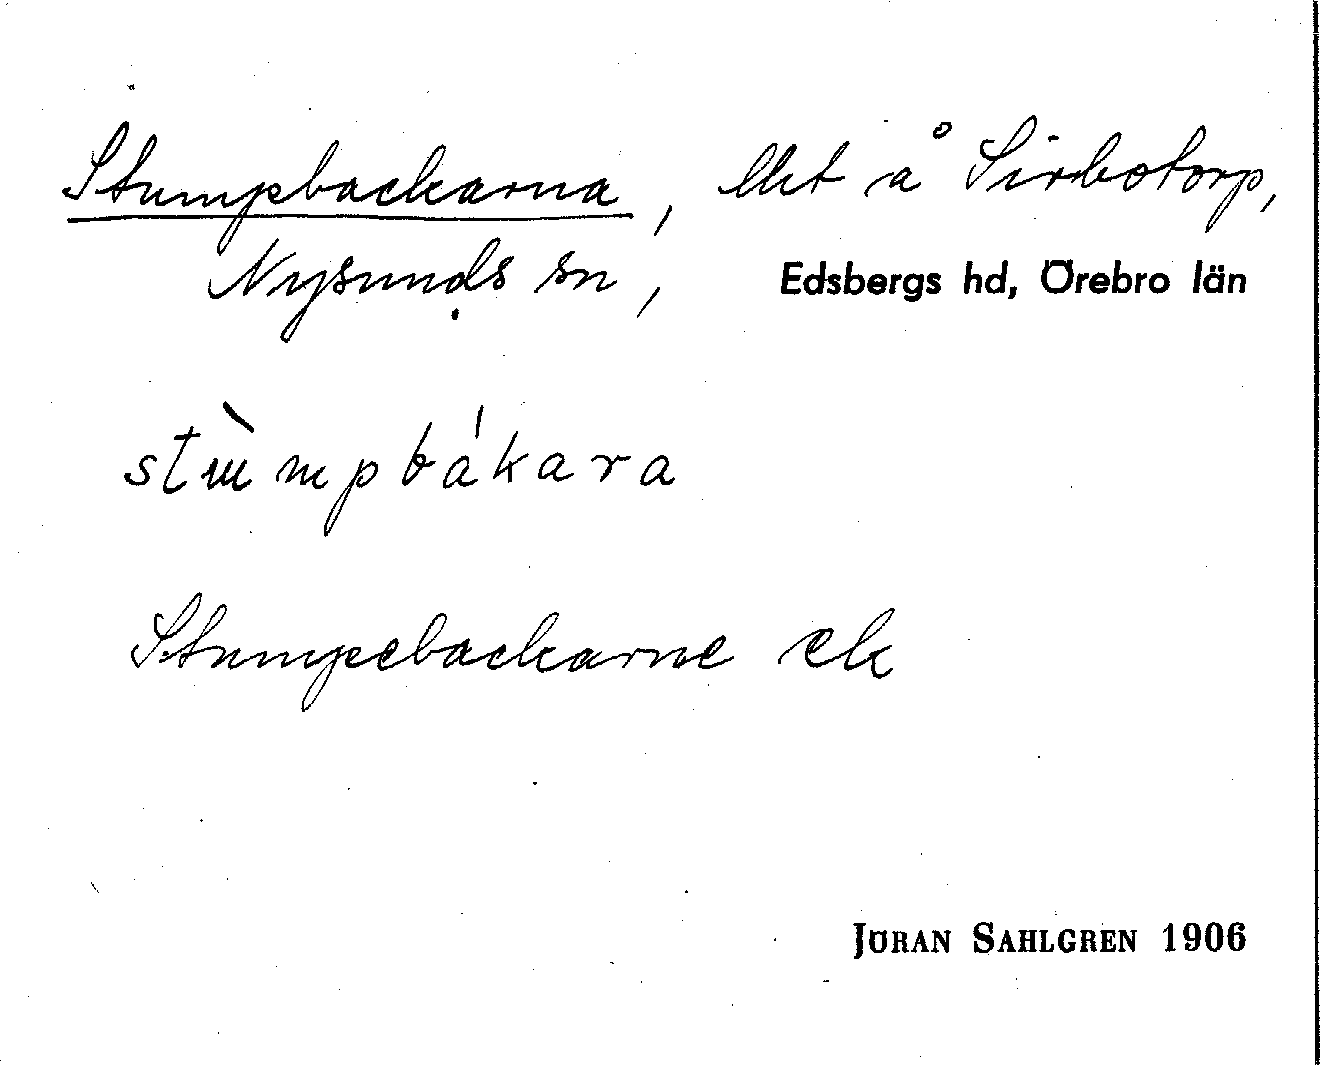 Stumpbackarna, lht å Sirbotorp,
Nysunds sn, Edsbergs hd, Örebro län
stùmpbákara
Stumpebackarne ek
JÖRAN SAHLGREN 1906